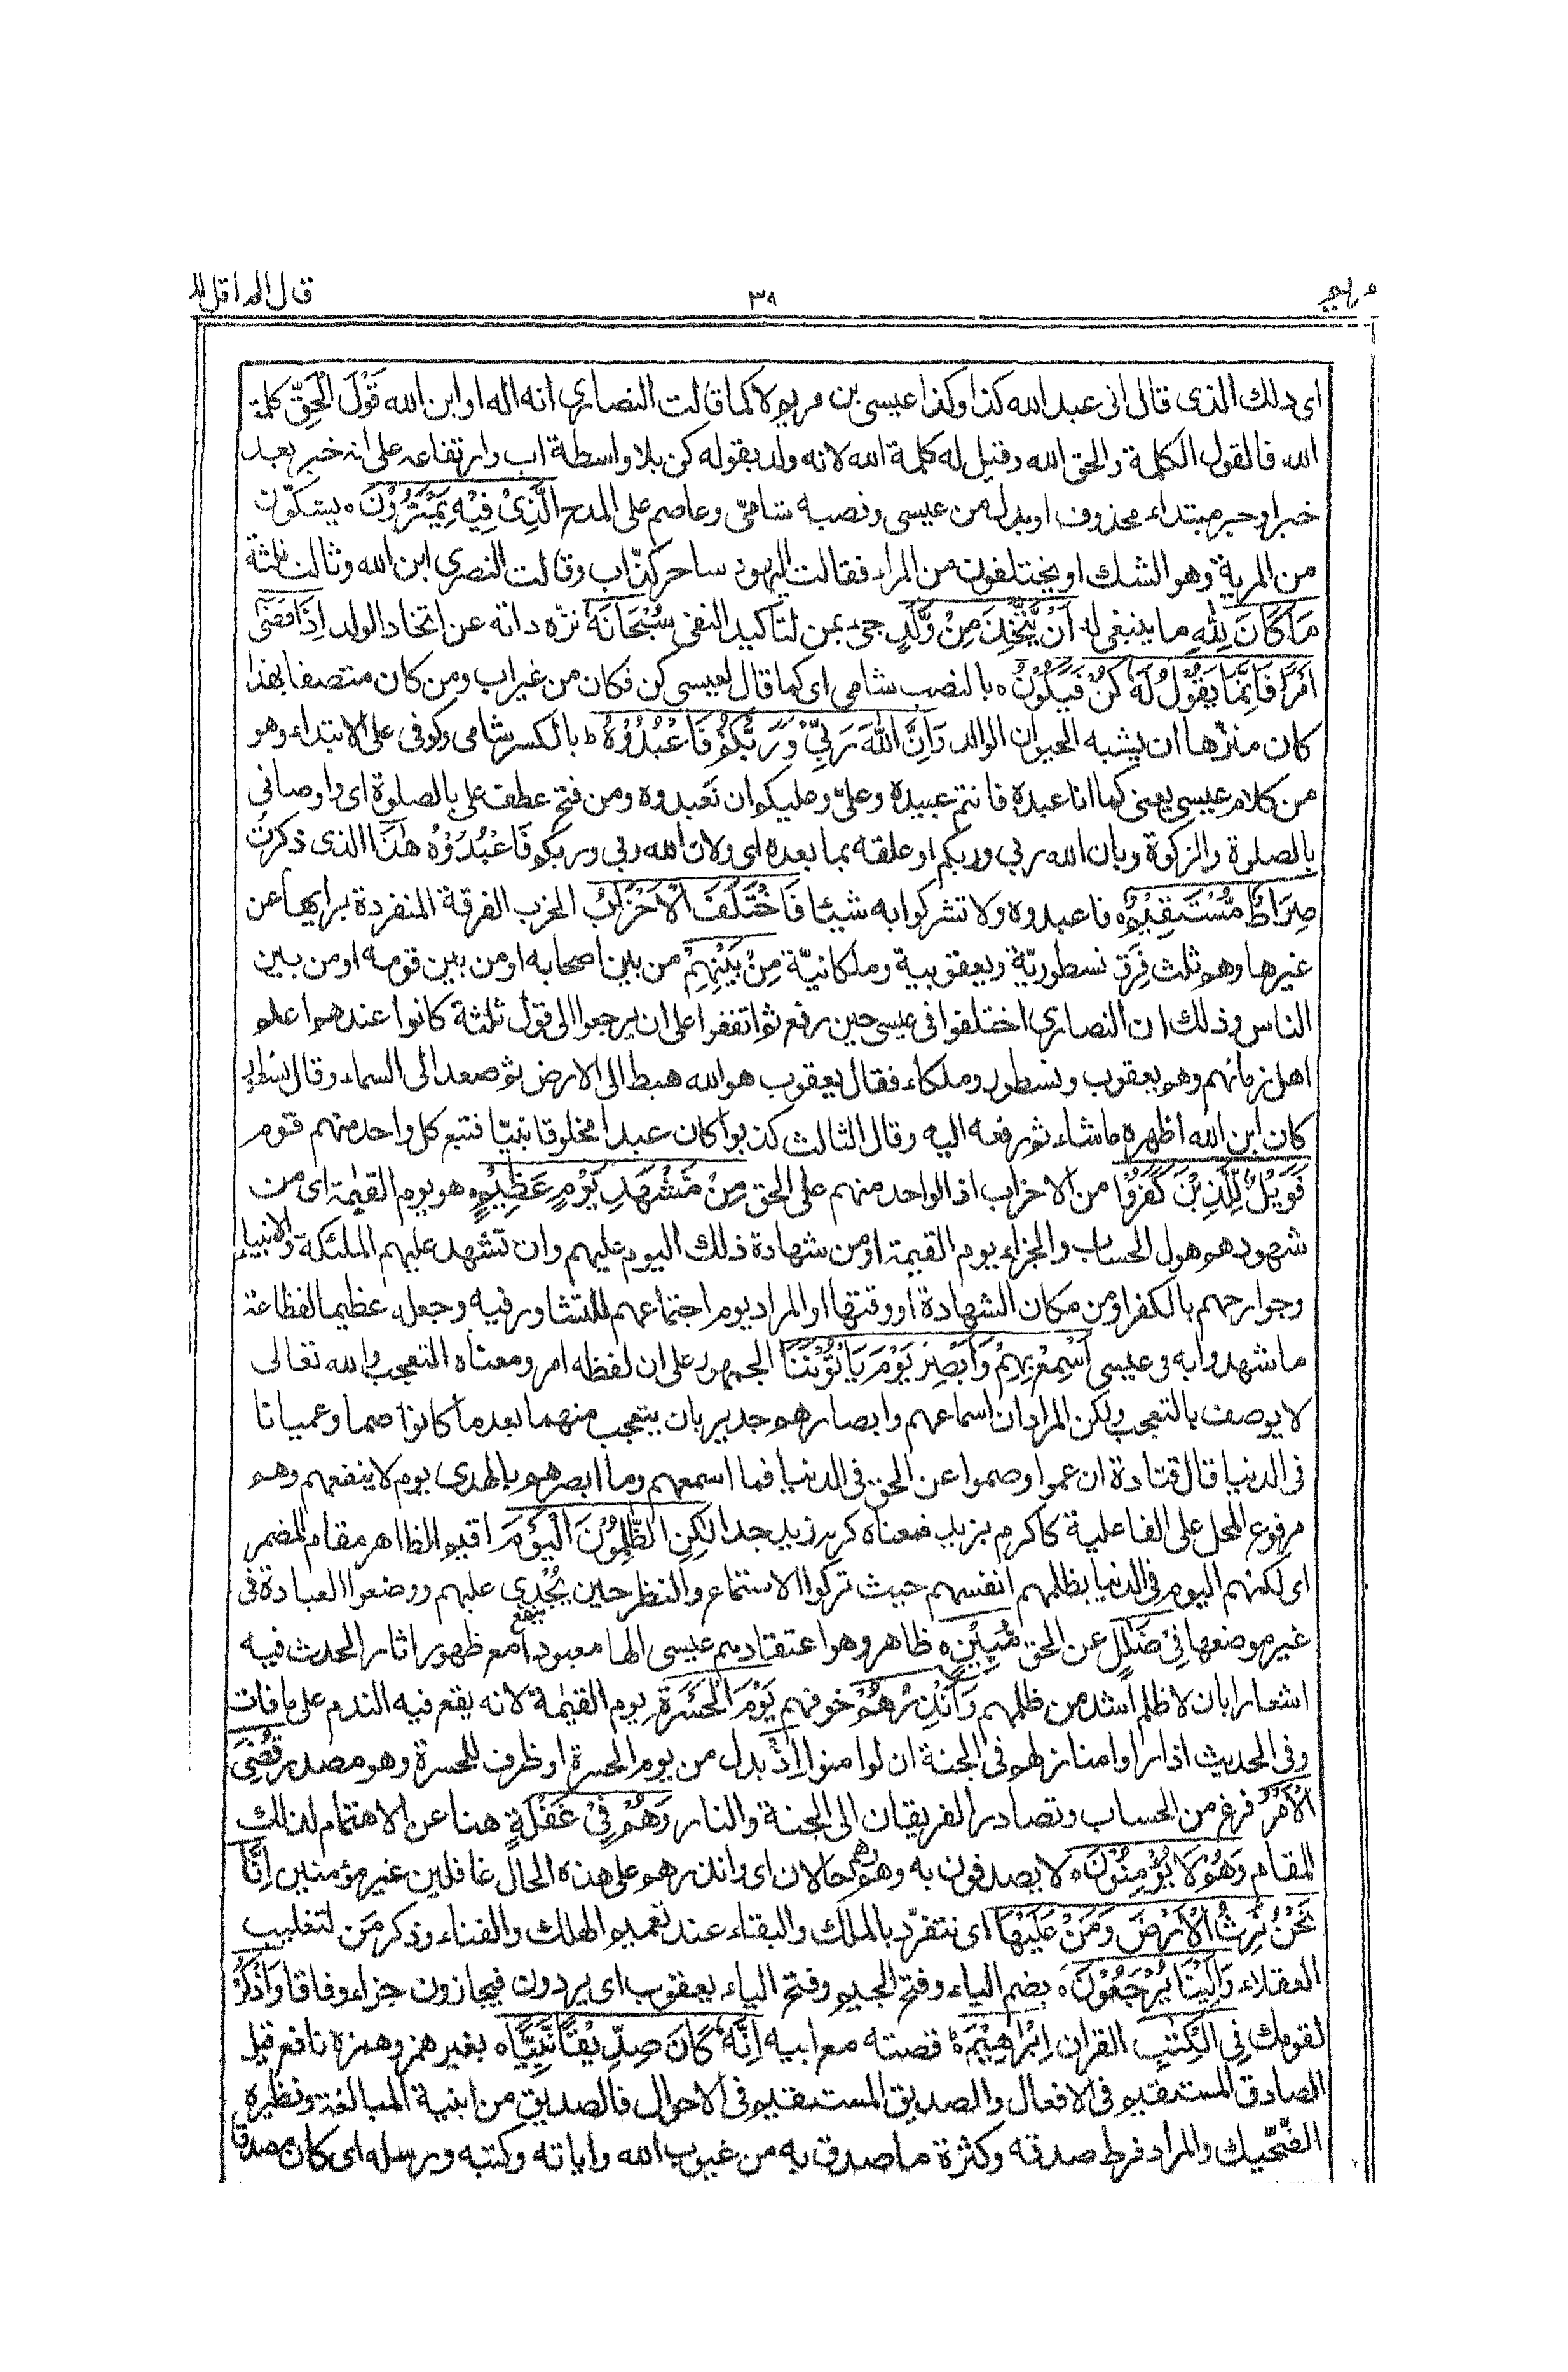 مريم
٣٩
قال الم اقل لك
اى ذلك الذى قال انى عبد الله كذا وكذا عيسى بن مريم لا كما قالت النصارى انه اله او ابن الله قَوْلَ الْحَقِّ كلمة
الله فالقول الكلمة والحق الله وقيل له كلمة الله لانه ولد بقوله كن بلا واسطة اب وارتفاعه على انه خبر بعد
خبر او خبر مبتداء محذوف او بدل من عيسى ونصبه شامىّ وعاصم على المدح الَّذِىْ فِيْهِ يَمْتَرُوْنَ ه يشكّون
من المرية وهو الشك او يختلفون من المراء فقالت اليهود ساحر كذّاب وقالت النصرى ابن الله وثالث ثلثة
مَا كَانَ لِلّٰهِ ما ينبغى له اَنْ يَّتَّخِذَ مِنْ وَّلَدٍ جىء بمن لتاكيد النفى سُبْحَانَهٗ نزّه ذاته عن اتخاذ الولد اِذَا قَضٰى
اَمْرًا فَاِنَّمَا يَقُوْلُ لَهٗ كُنْ فَيَكُوْنُ ه بالنصب شامى اى كما قال لعيسى كن فكان من غير اب ومن كان متصفا بهذا
كان منزّها ان يشبه الحيوان الوالد وَاِنَّ اللّٰهَ رَبِّىْ وَرَبُّكُمْ فَاعْبُدُوْهُ ط بالكسر شامى وكوفى على الابتداء وهو
من كلام عيسى يعنى كما انا عبده فانتم عبيده وعلىّ وعليكم ان نعبدوه ومن فتح عطف على بالصلوة اى واوصانى
بالصلوة والزكوة وبان الله ربى وربكم او علقه بما بعده اى ولان الله ربى وربكم فَاعْبُدُوْهُ هٰذَا الذى ذكرتُ
صِرَاطٌ مُّسْتَقِيْمٌ ه فاعبدوه ولا تشركوا به شيئا فَاخْتَلَفَ الْاَحْزَابُ الحزب الفرقة المنفردة برايها عن
غيرها وهم ثلث فِرَق نسطوريّة ويعقوبية وملكانيّة مِنْ بَيْنِهِمْ من بين اصحابه او من بين قومه او من بين
الناس وذلك ان النصارى اختلفوا فى عيسى حين رفع ثم اتفقوا على ان يرجعوا الى قول ثلثة كانوا عندهم اعلم
اهل زمانهم وهم يعقوب ونسطور وملكاء فقال يعقوب هو الله هبط الى الارض ثم صعد الى السماء وقال نسطور
كان ابن الله اظهره ما شاء ثم رفعه اليه وقال الثالث كذبوا كان عبدا مخلوقا نبيّا فتبع كل واحد منهم قوم
فَوَيْلٌ لِّلَّذِيْنَ كَفَرُوْا من الاحزاب اذ الواحد منهم على الحق مِنْ مَّشْهَدِ يَوْمٍ عَظِيْمٍ ه هو يوم القيٰمة اى من
شهودهم هول الحساب والجزاء يوم القيمة او من شهادة ذلك اليوم عليهم وان تشهد عليهم الملئكة والانبياء
وجوارحهم بالكفر او من مكان الشهادة او وقتها او المراد يوم اجتماعهم للتشاور فيه وجعله عظيما لفظاعة
ما شهدوا به فى عيسى اَسْمِعْ بِهِمْ وَاَبْصِرْ يَوْمَ يَاْتُوْنَنَا الجمهور على ان لفظه امر ومعناه التعجب والله تعالى
لا يوصف بالتعجب ولكن المراد ان اسماعهم وابصارهم جدير بان يتعجب منهما بعد ما كانوا صما وعميانا
فى الدنيا قال قتادة ان عموا وصموا عن الحق فى الدنيا فما اسمعهم وما ابصرهم بالهدى يوم لا ينفعهم وهم
مرفوع المحل على الفاعلية كاكرم بزيد فمعناه كرم زيد جدا لٰكِنِ الظّٰلِمُوْنَ الْيَوْمَ اقيم الظاهر مقام المضمر
اى لكنهم اليوم فى الدنيا بظلمهم انفسهم حيث تركوا الاستماع والنظر حين يُجْدِى عليهم ووضعوا العبادة فى
ينفع
غير موضعها فِىْ ضَلٰلٍ عن الحق مُّبِيْنٍ ه ظاهر وهو اعتقادهم عيسى الها معبودا مع ظهور اثار الحدث فيه
اشعارا بان لا ظلم اشد من ظلمهم وَاَنْذِرْهُمْ خوفهم يَوْمَ الْحَسْرَةِ يوم القيٰمة لانه يقع فيه الندم على ما فات
وفى الحديث اذا راوا منازلهم فى الجنة ان لو امنوا اِذْ بدل من يوم الحسرة او ظرف للحسرة وهو مصدر قُضِىَ
الْاَمْرُ فرغ من الحساب وتصادر الفريقان الى الجنة والنار وَهُمْ فِىْ غَفْلَةٍ هنا عن الاهتمام لذلك
المقام وَهُمْ لَا يُؤْمِنُوْنَ ه لا يصدقون به وهم وهم حالان اى وانذرهم على هذه الحال غافلين غير مؤمنين اِنَّا
نَحْنُ نَرِثُ الْاَرْضَ وَمَنْ عَلَيْهَا اى نتفرّد بالملك والبقاء عند تعميم الهلك والفناء وذكر مَن لتغليب
العقلاء وَاِلَيْنَا يُرْجَعُوْنَ ه بضم الياء وفتح الجيم وفتح الياء يعقوب اى يردون فيجازون جزاء وفاقا وَاذْكُرْ
لقومك فِى الْكِتٰبِ القران اِبْرَاهِيْمَ ه قصته مع ابيه اِنَّهٗ كَانَ صِدِّيْقًا نَّبِيًّا ه بغير همز وهمزه نافع قيل
الصادق المستقيم فى الافعال والصديق المستقيم فى الاحوال فالصديق من ابنية المبالغة ونظيره
الضِّحِّيك والمراد فرط صدقه وكثرة ما صدق به من غيوب الله واياته وكتبه ورسله اى كان مصدقا